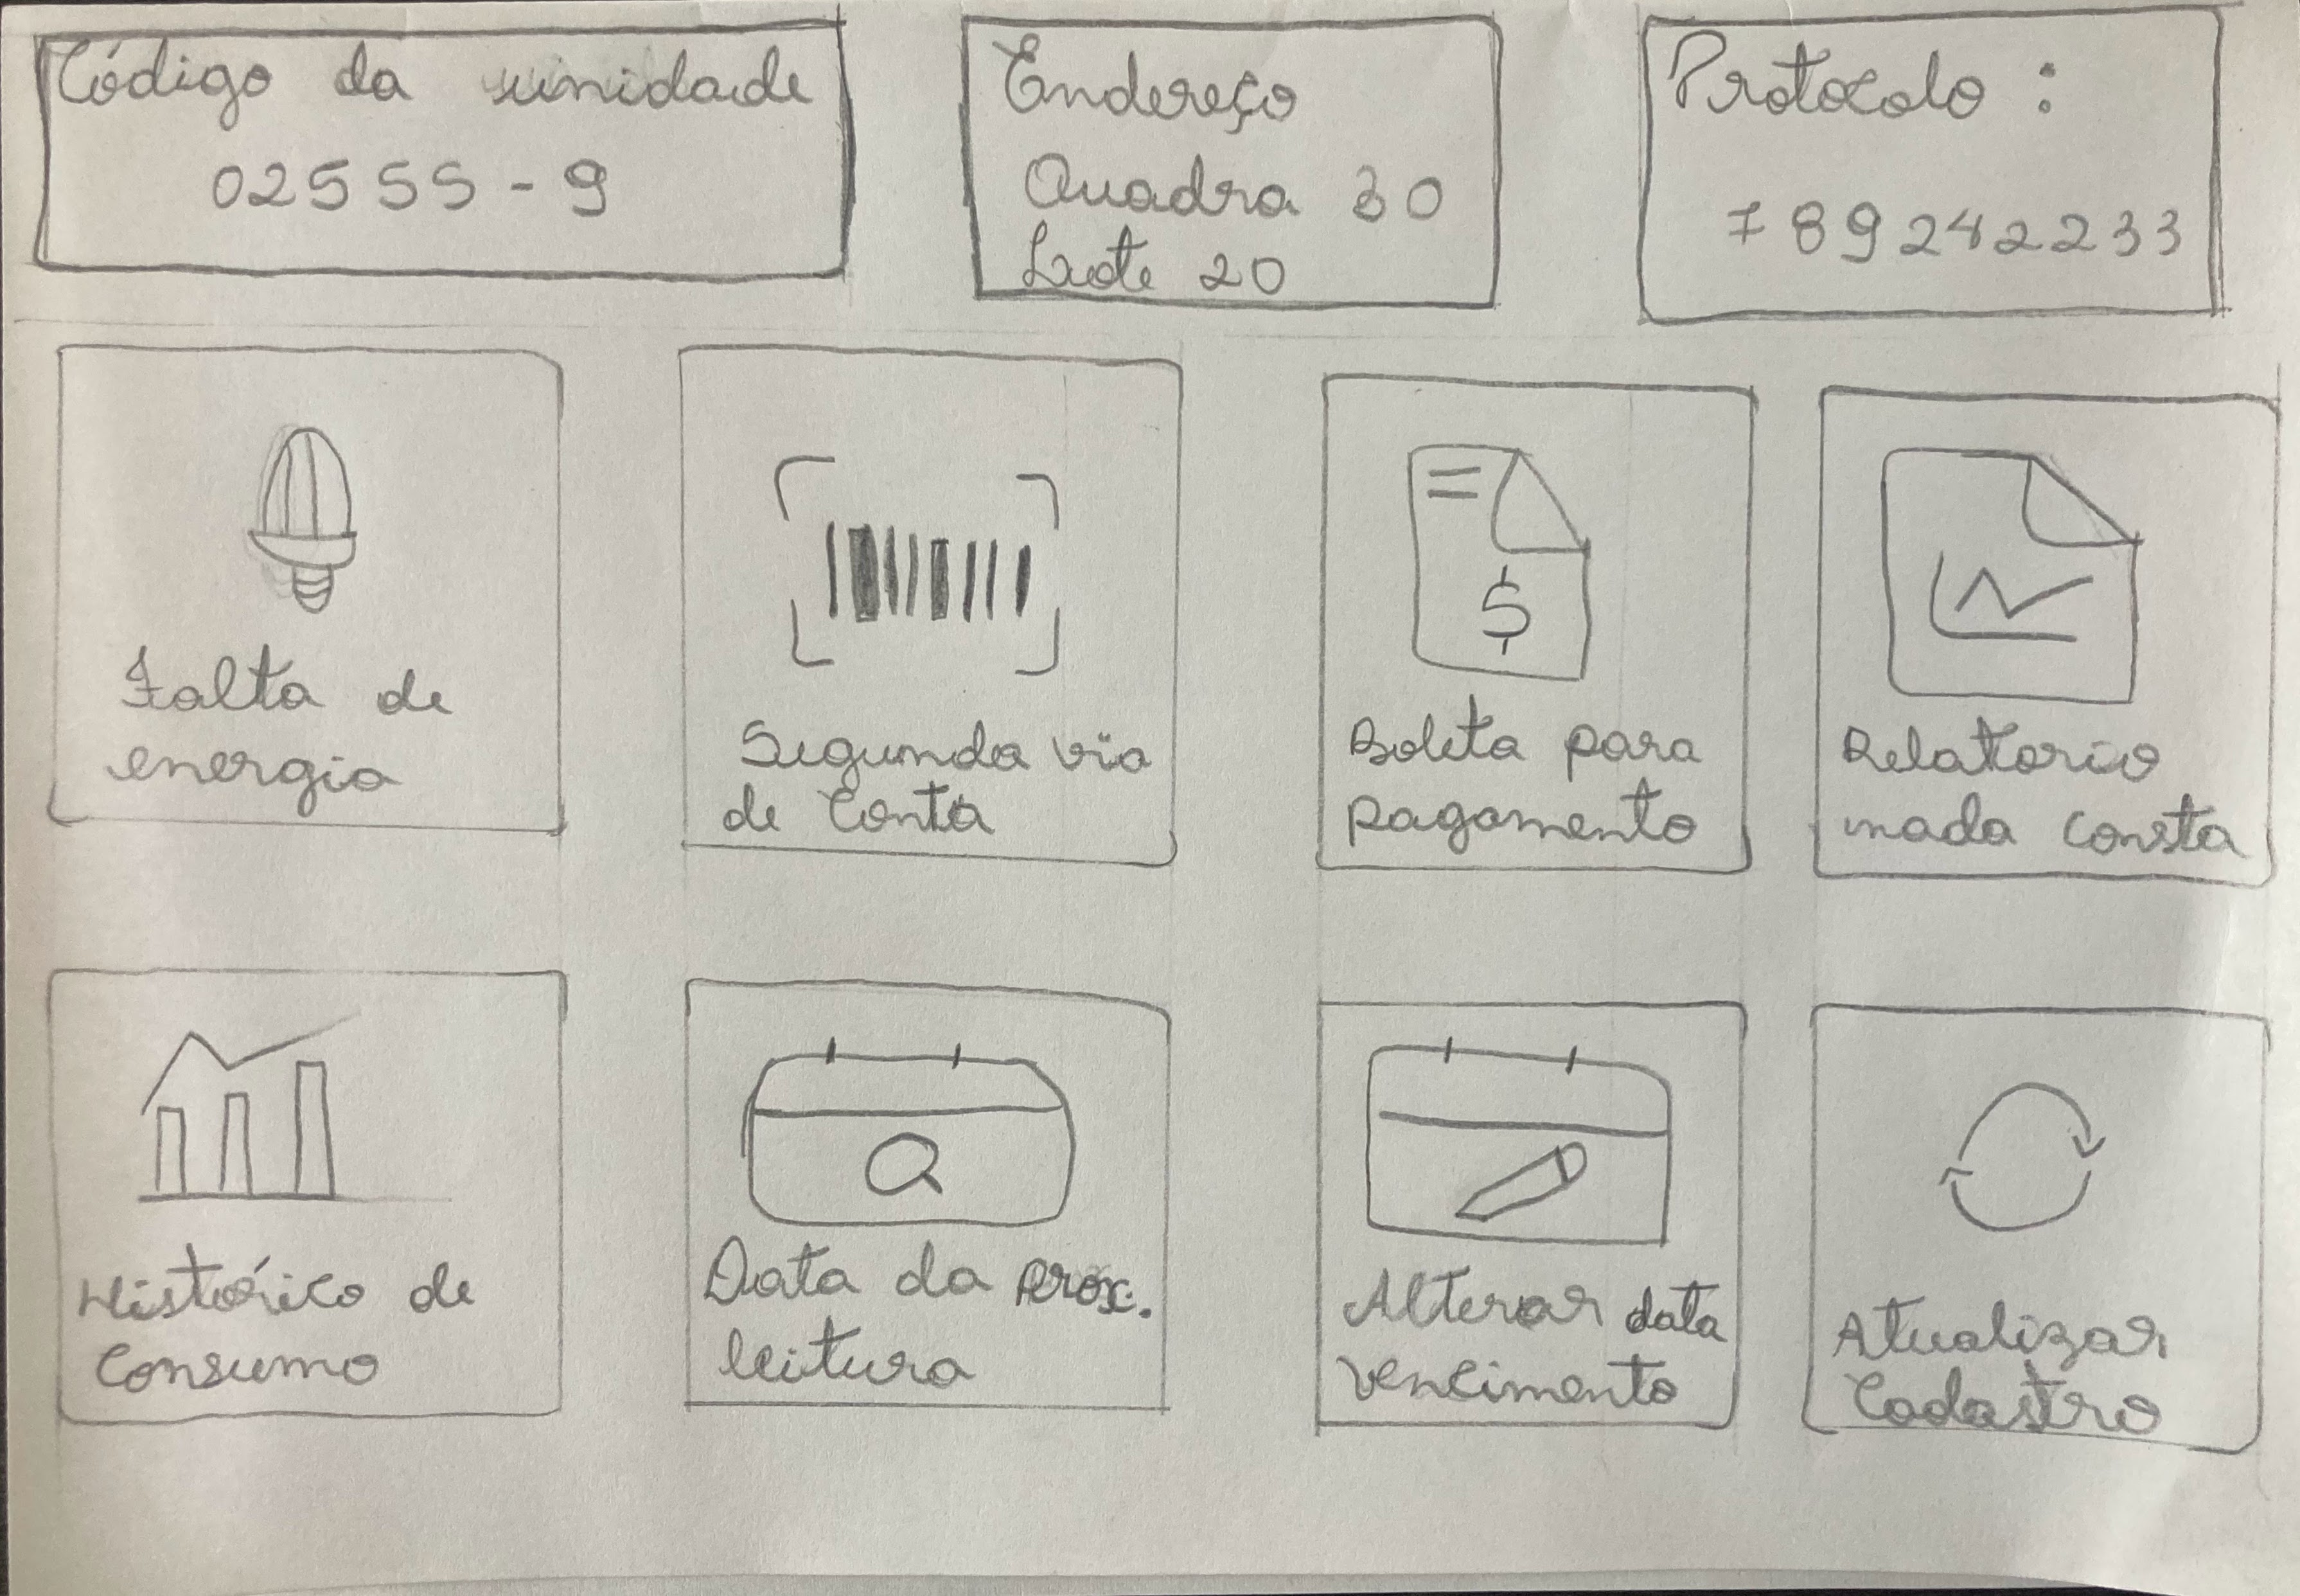 Código da unidade
02555-9
Endereço
Quadra 30
Lote 20
Protocolo:
789242233
Falta de
energia
Segunda via
de Conta
$
Boleta para
pagamento
Relatorio
nada consta
Histórico de
Consumo
Data da prox.
leitura
Alterar data
vencimento
Atualizar
Cadastro